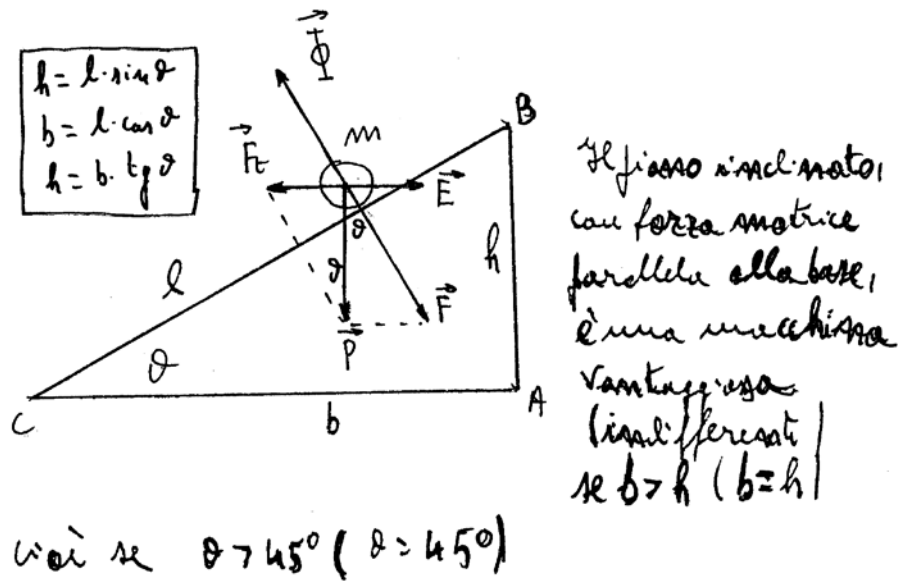 h = l·sinϑ
b = l·cosϑ
h = b·tgϑ
Φ
m
B
Ft
E
h
l
ϑ
ϑ
F
ϑ
P
C
b
A
Il piano inclinato,
con forza motrice
parallela alla base,
è una macchina
vantaggiosa
(indifferente)
se b > h (b = h)
cioè se ϑ > 45° (ϑ = 45°)